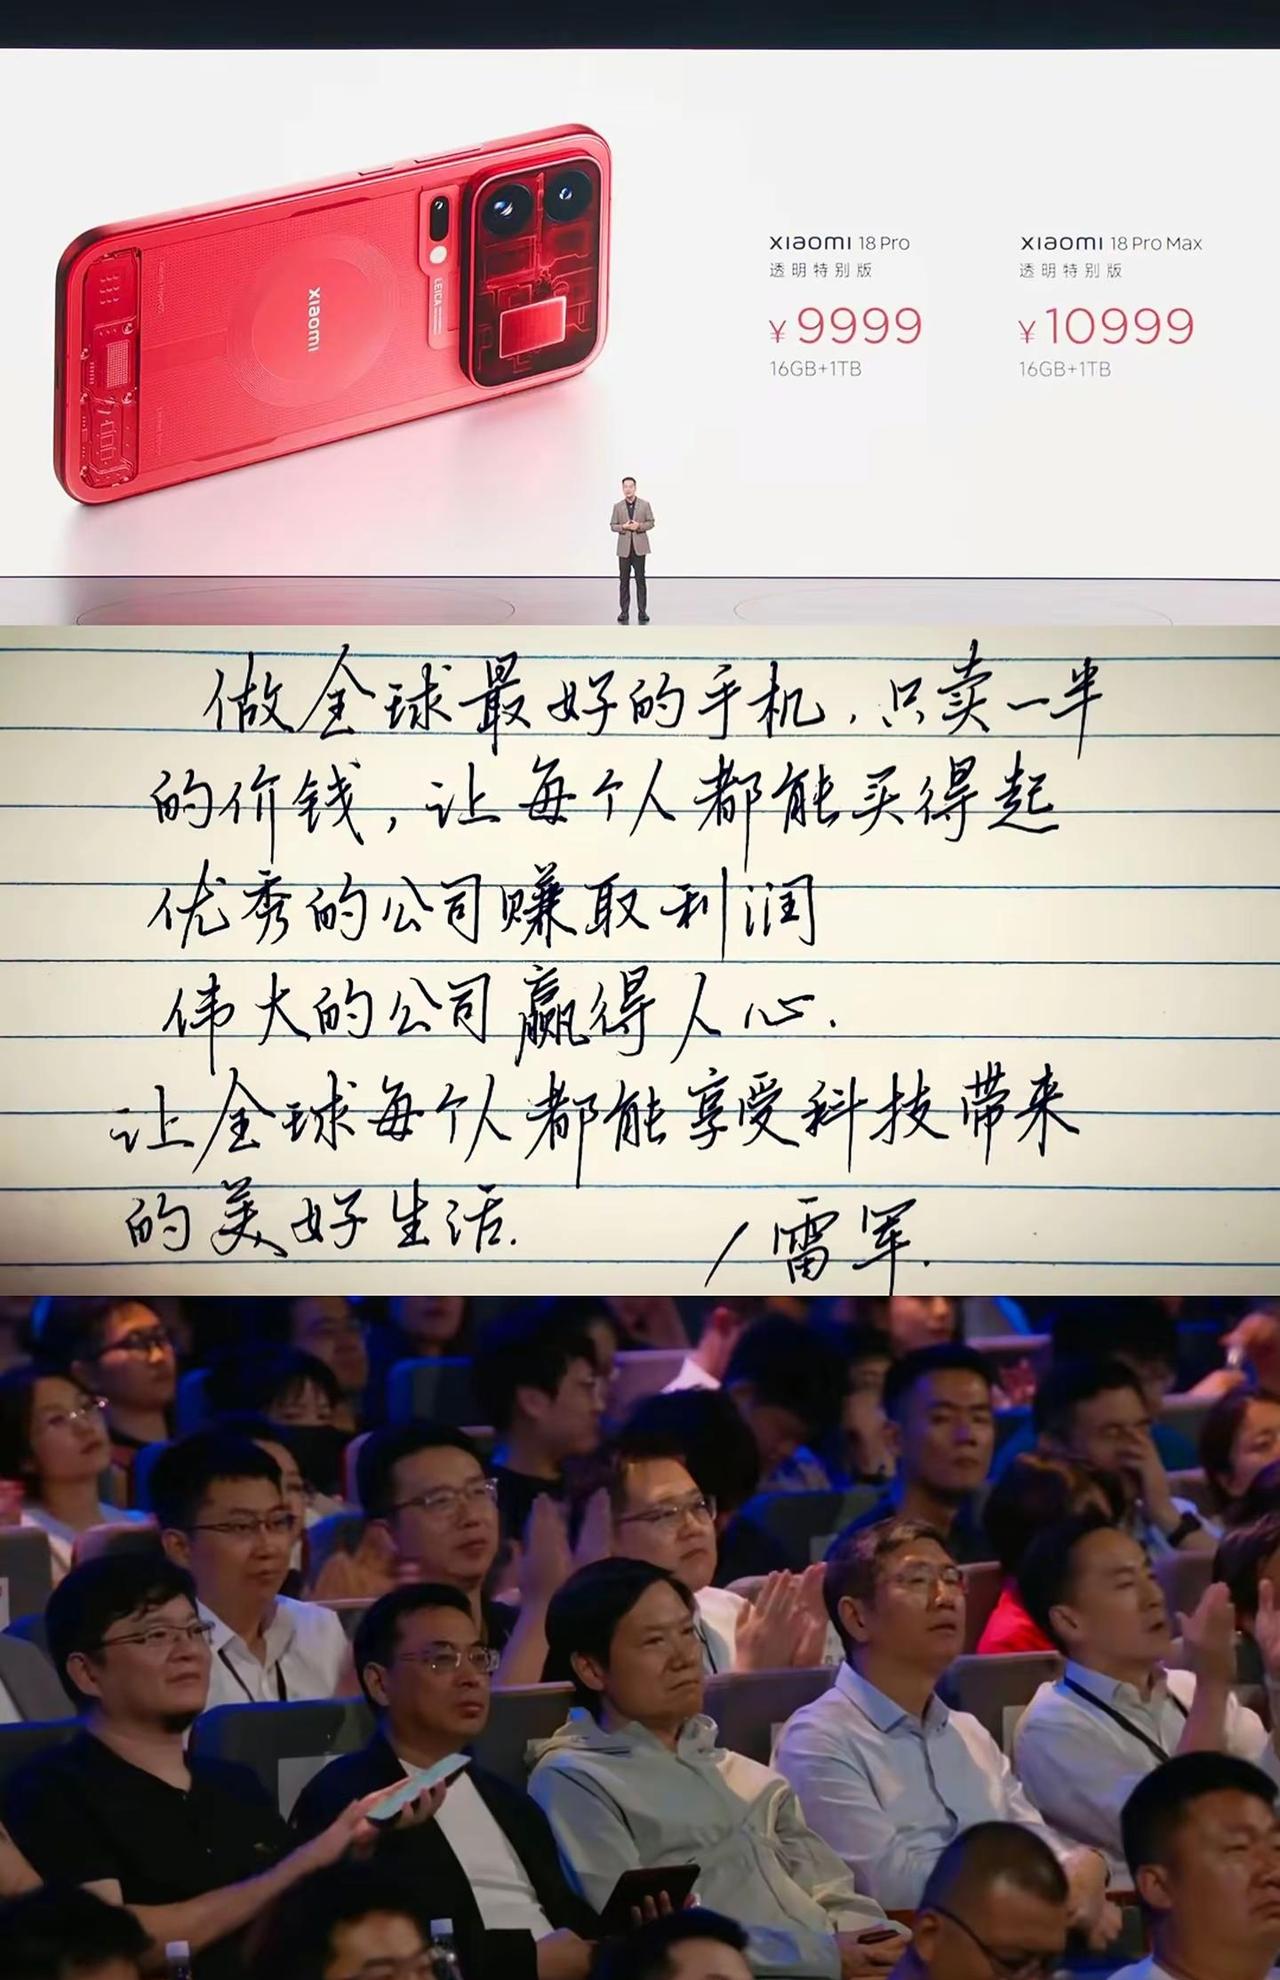 xiaomi
LEICA
xiaomi 18 Pro
透明特别版
¥ 9999
16GB+1TB
xiaomi 18 Pro Max
透明特别版
¥ 10999
16GB+1TB
做全球最好的手机,只卖一半
的价钱,让每个人都能买得起
优秀的公司赚取利润
伟大的公司赢得人心.
让全球每个人都能享受科技带来
的美好生活.
/雷军.